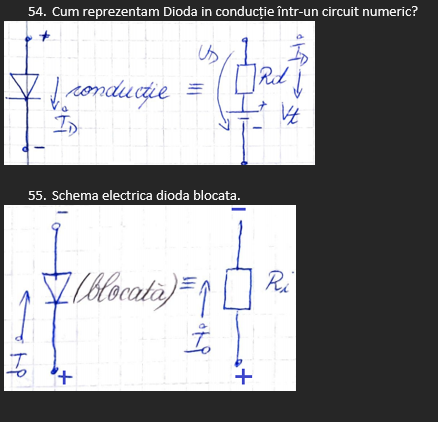 54. Cum reprezentam Dioda in conducție într-un circuit numeric?
+
conducție ≡
I_D
-
U_D
Rd
I_D
+
Vt
-
55. Schema electrica dioda blocata.
-
(blocată) ≡
I_0
+
-
Ri
I_0
+